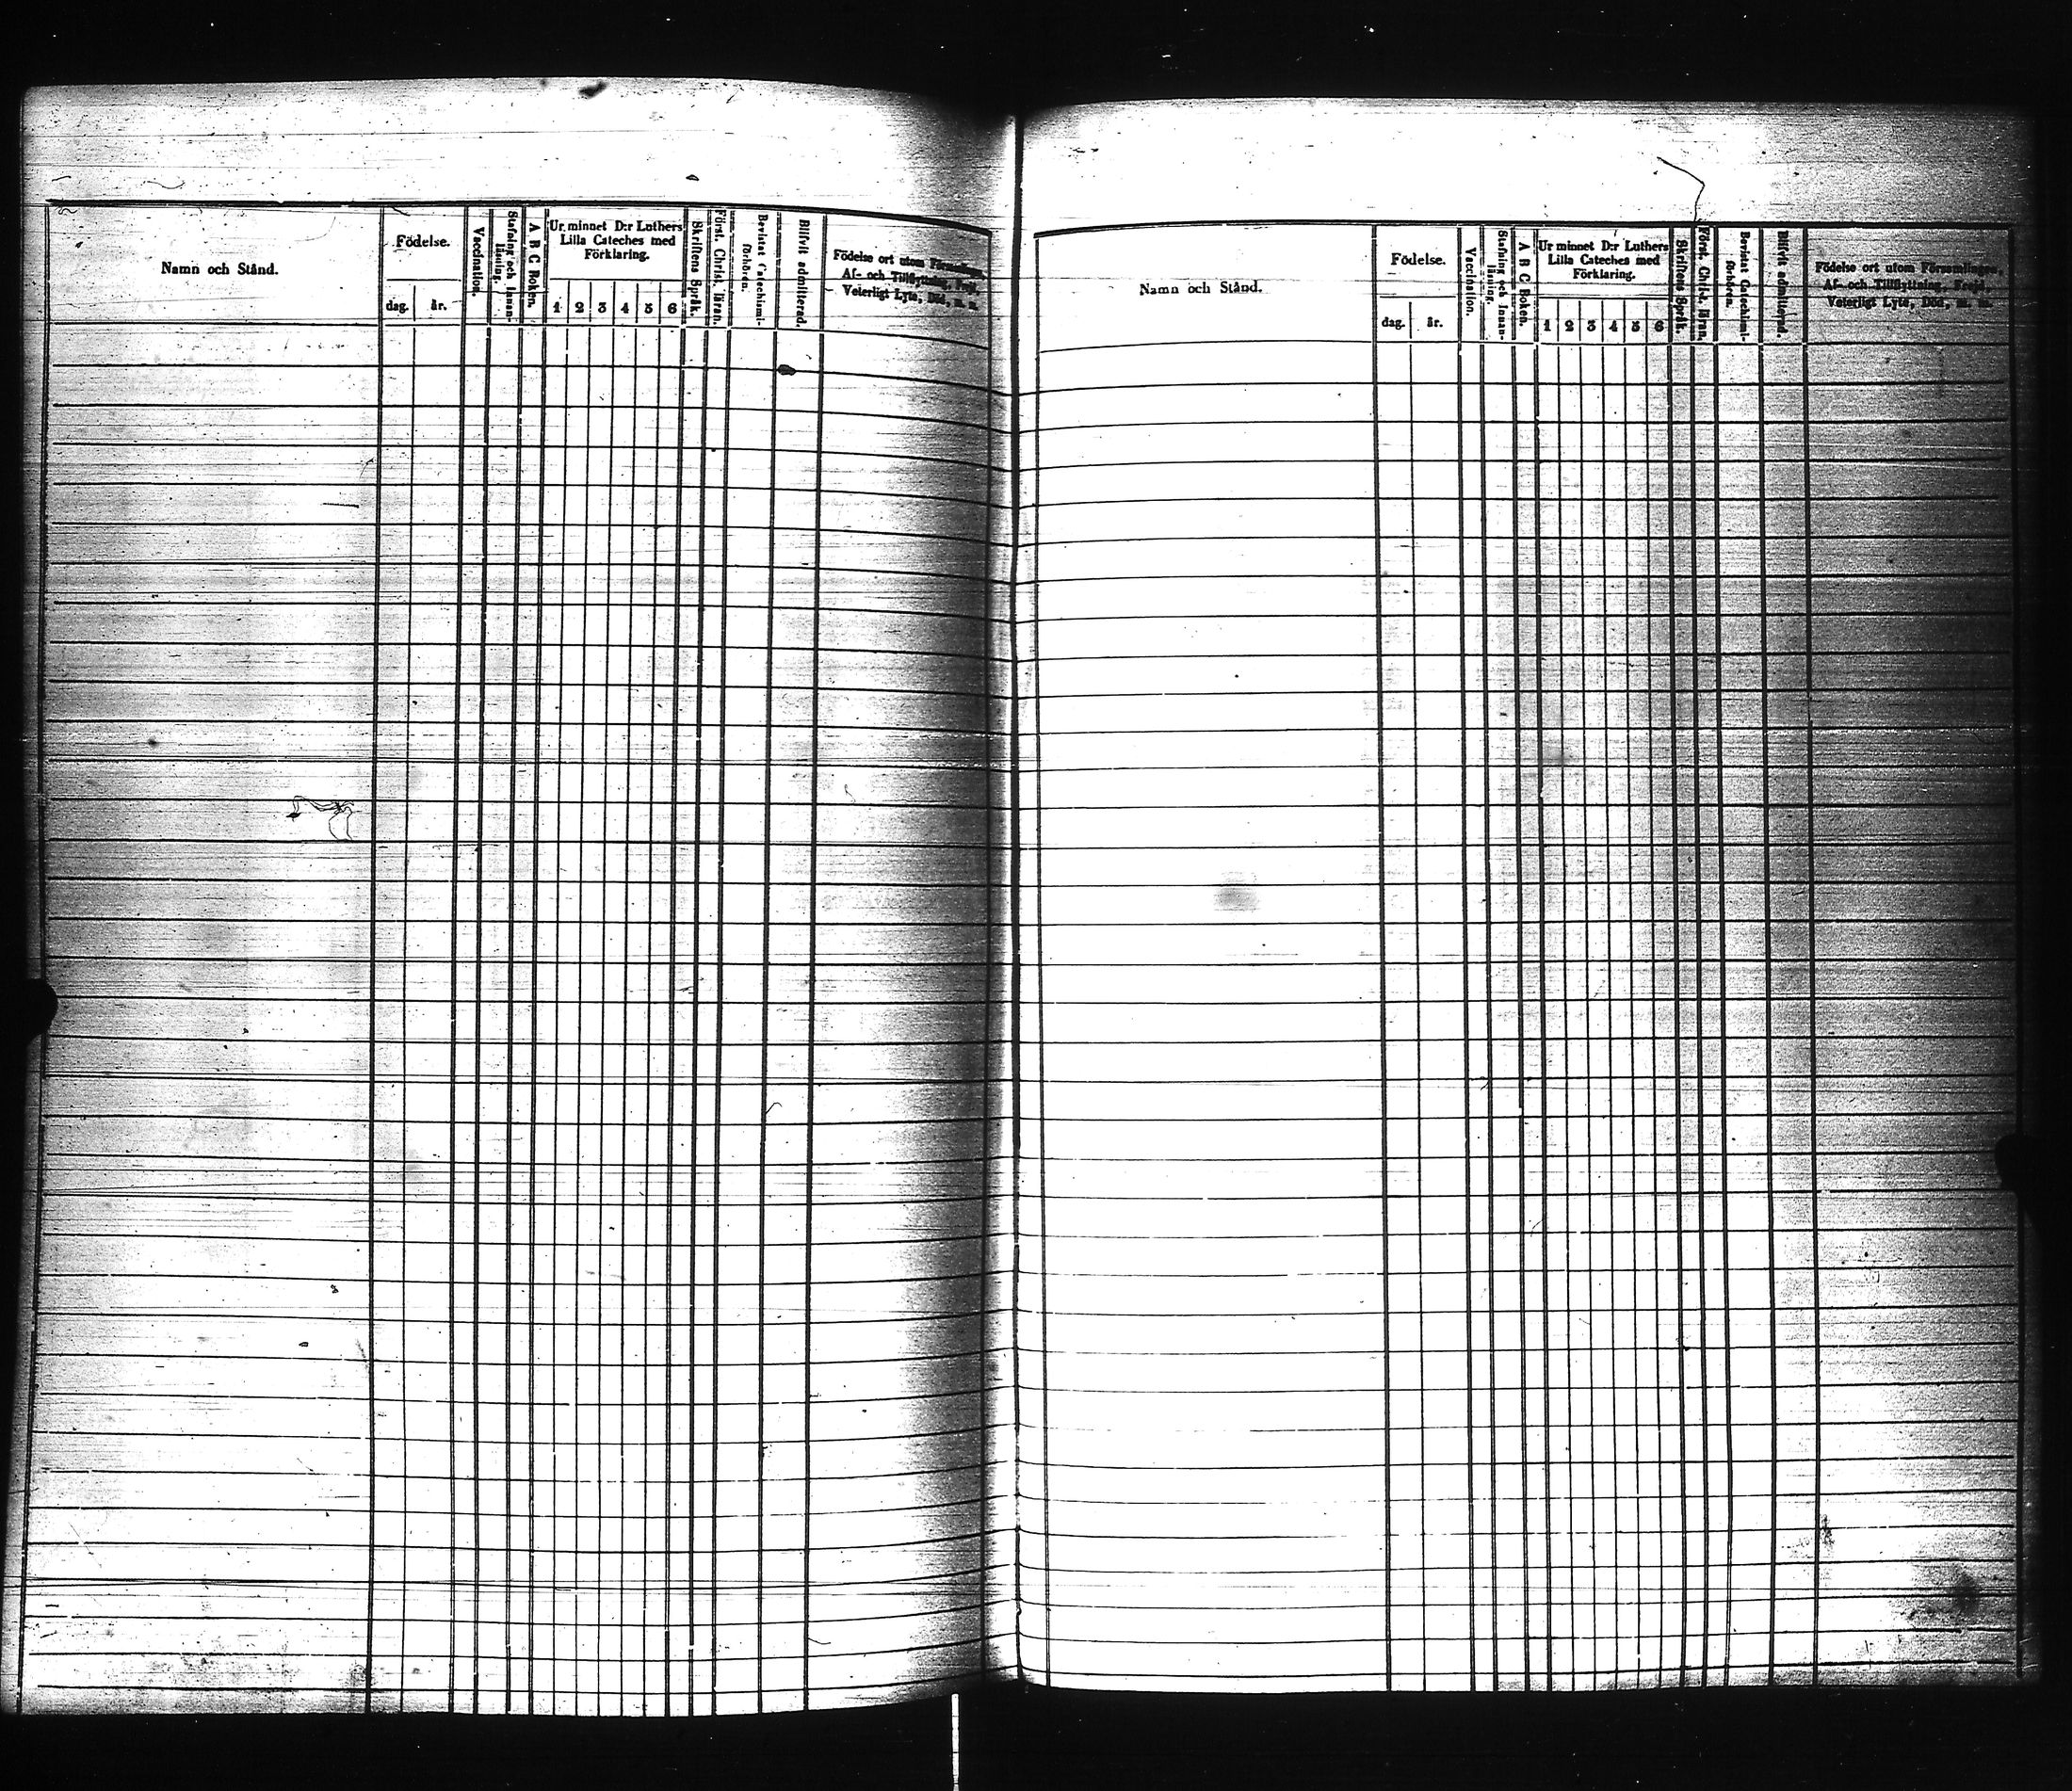 Namn och Stånd.
Födelse.
dag.
år.
Vaccination.
Stafning och Innan-
läsning.
A B C Boken.
Ur minnet D:r Luthers
Lilla Cateches med
Förklaring.
1 2 3 4 5 6
Skriftens Språk.
Först. Christ. läran.
Bevistat Catechismi-
förhören.
Blifvit admitterad.
Födelse ort utom Församlingen,
Af- och Tillflyttning, Frejd,
Veterligt Lyte, Död, m. m.
Namn och Stånd.
Födelse.
dag.
år.
Vaccination.
Stafning och Innan-
läsning.
A B C Boken.
Ur minnet D:r Luthers
Lilla Cateches med
Förklaring.
1 2 3 4 5 6
Skriftens Språk.
Först. Christ. läran.
Bevistat Catechismi-
förhören.
Blifvit admitterad.
Födelse ort utom Församlingen,
Af- och Tillflyttning, Frejd,
Veterligt Lyte, Död, m. m.